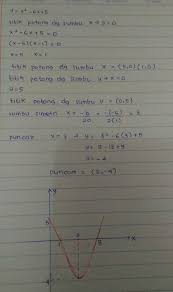 y = x² - 6x + 5
titik potong dg sumbu x → y = 0
x² - 6x + 5 = 0
(x - 5)(x - 1) = 0
x = 5 x = 1
titik potong dg sumbu x = (5,0) (1,0)
titik potong dg sumbu y → x = 0
y = 5
titik potong dg sumbu y = (0,5)
sumbu simetri x = -b / 2a = -(-6) / 2(1) = 3
puncak x = 3 → y = 3² - 6(3) + 5
y = 9 - 18 + 5
y = -4
puncak = (3, -4)
y
5
1
5
x
-4